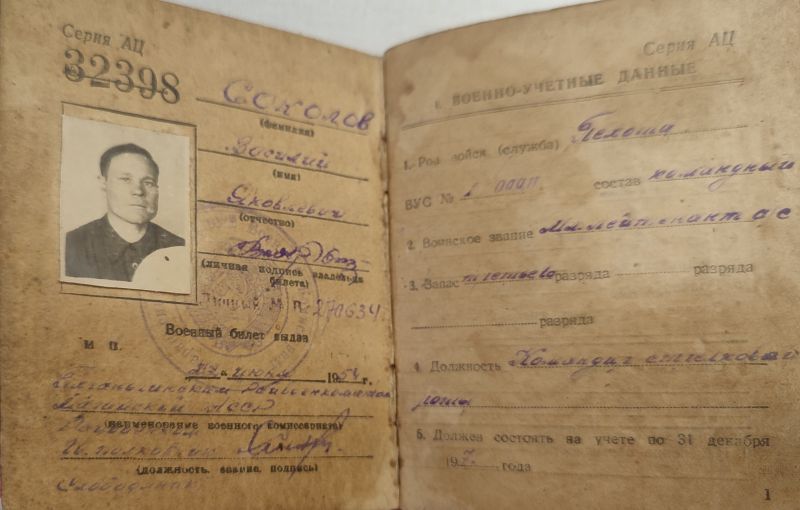 Серия АЦ
32398
Соколов
(фамилия)
Василий
(имя)
Яковлевич
(отчество)
(личная подпись владельца
билета)
Личный № П-270634
Военный билет выдан
М П.
июня 1954 г.
(наименование военного комиссариата)
(должность, звание, подпись)
Серия АЦ
ВОЕННО-УЧЕТНЫЕ ДАННЫЕ
1. Род войск (служба) Пехота
ВУС № состав командный
2. Воинское звание Мл. лейтенант а/с
3. Запас третьего разряда разряда
разряда
4 Должность Командир стрелковой
роты
5. Должен состоять на учете по 31 декабря
19 года
1